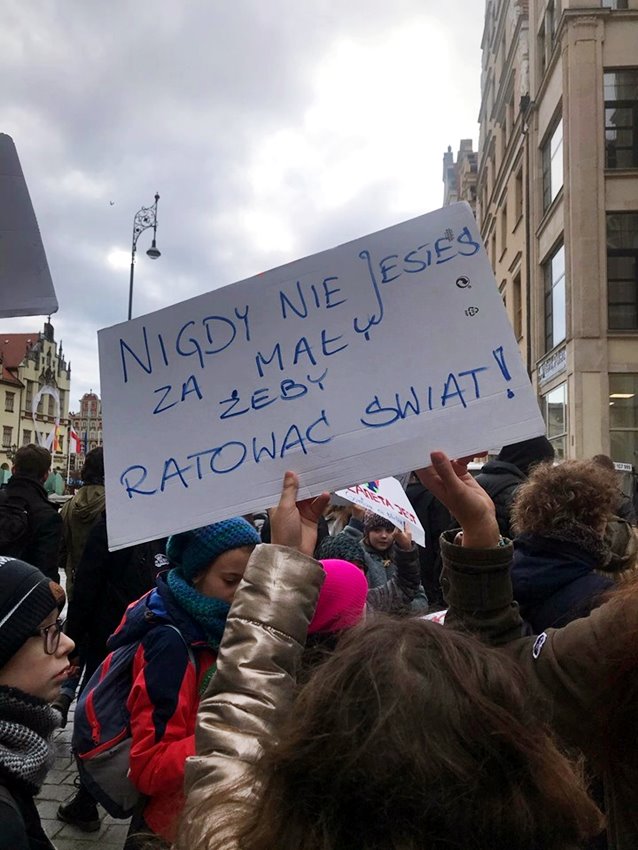 NIGDY NIE JESTEŚ
ZA MAŁY
ŻEBY
RATOWAĆ ŚWIAT!